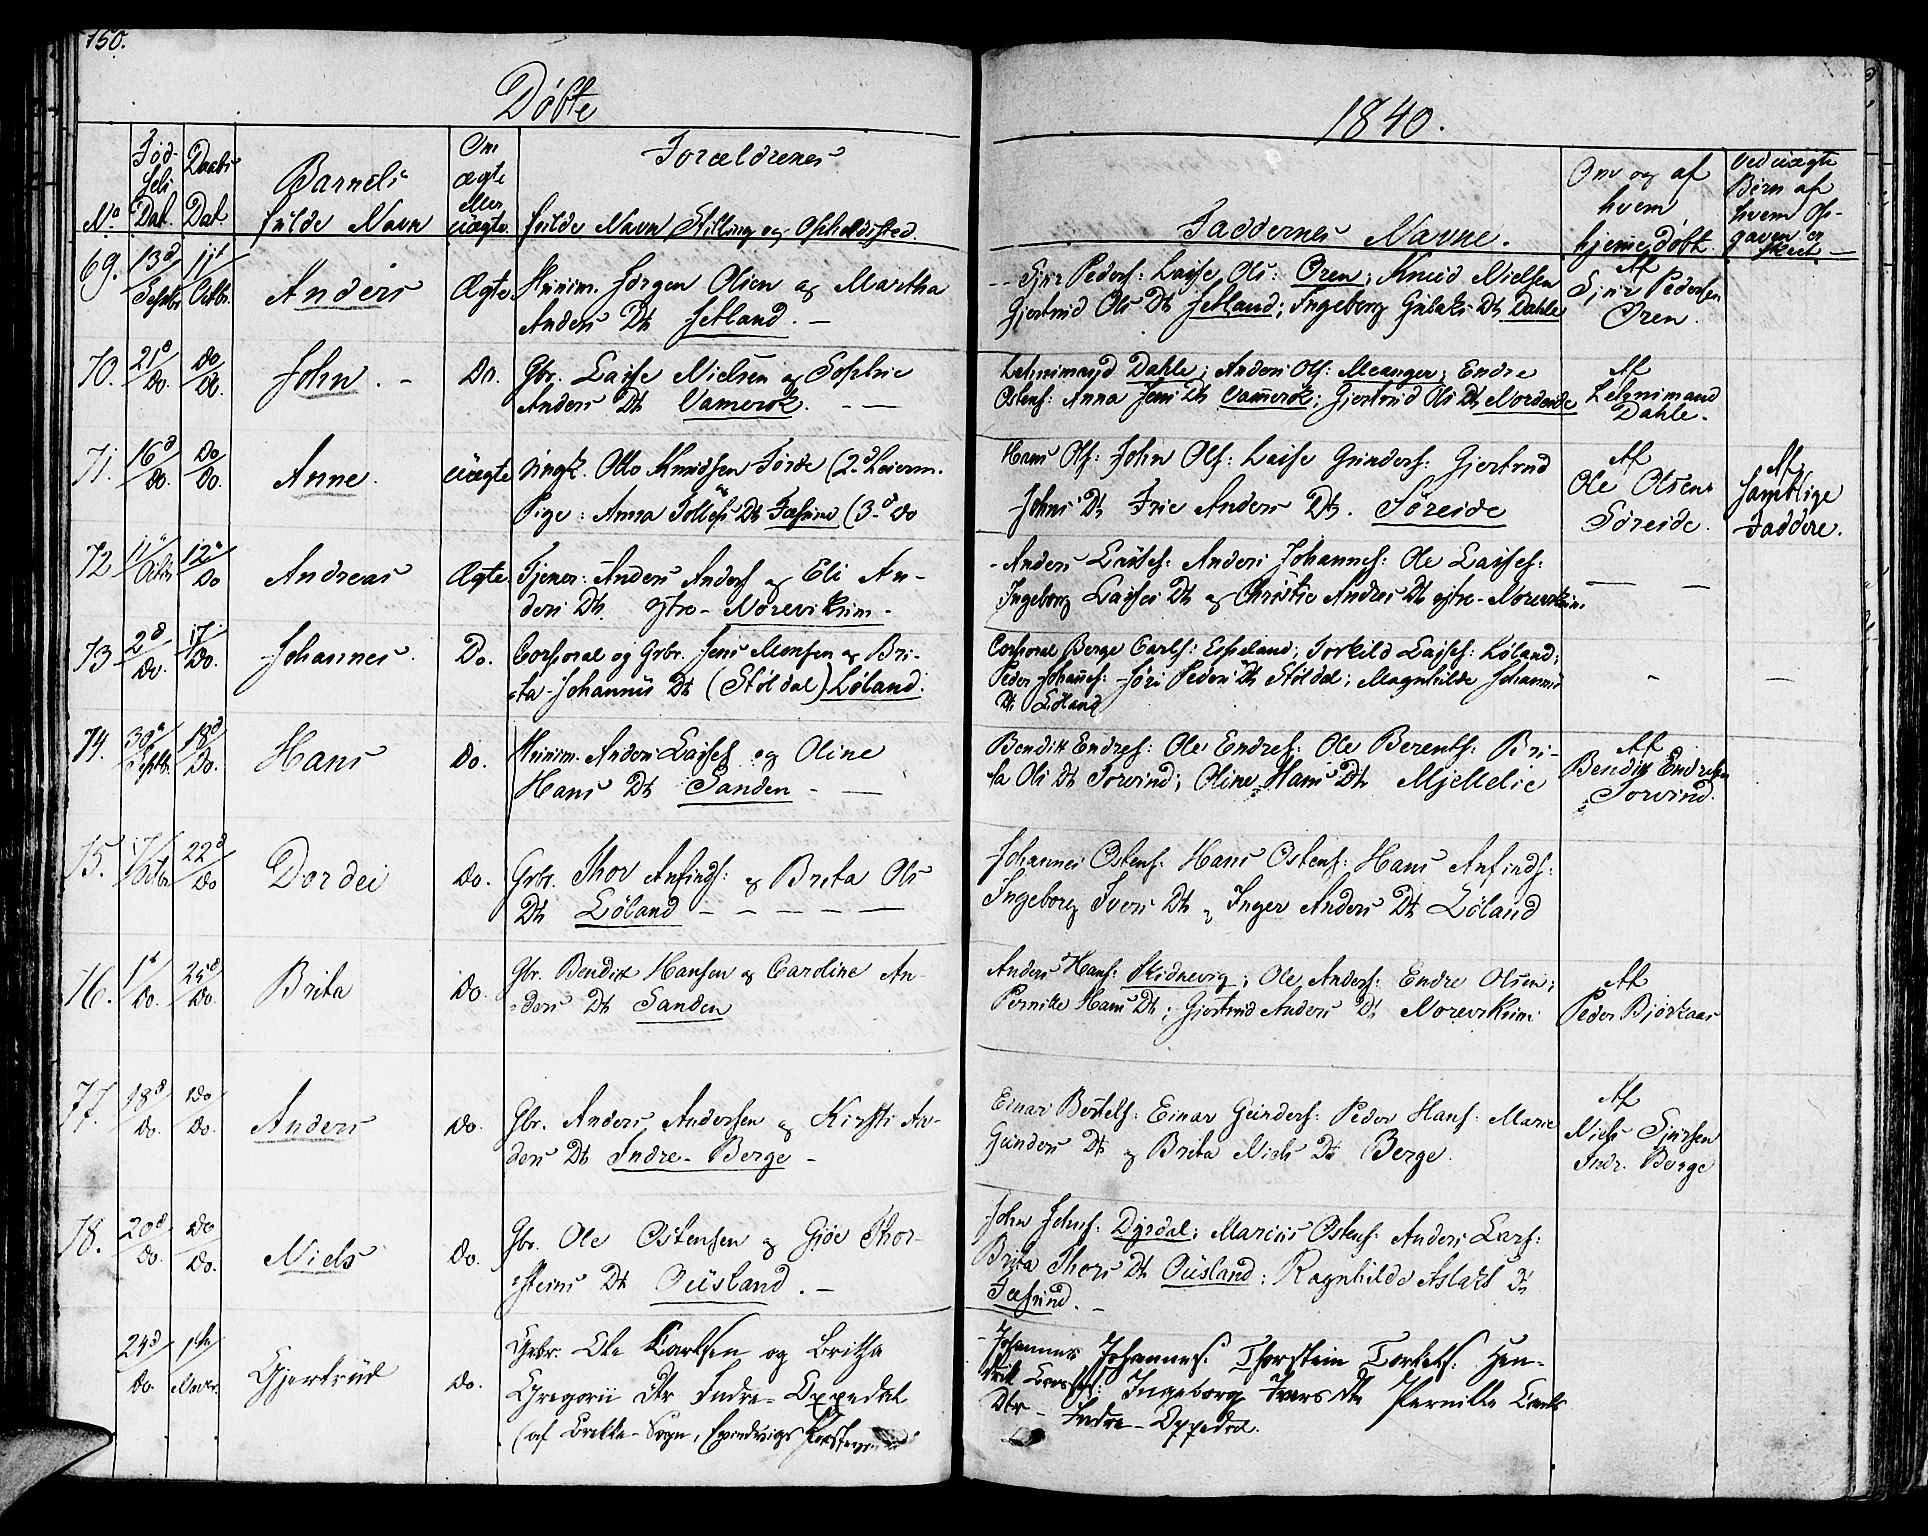 150.
Döbte
1840.
No
Föd-
sels
Dat.
Daabs
Dat
Barnets
fulde Navn
Om
ægte
eller
uægte.
Forældrenes
fulde Navn Stilling og Opholdssted.
Faddernes Navne.
Om og af
hvem
hjemedöbt.
Ved uægte
Börn af
hvem Op-
gaven er
skeet
69. 13d/Septbr 11t/Octbr. Anders Ægte. Huusm. Jørgen Olsen og Martha
Anders Dt Jetland. —
Peders: Lasse Ols: Oren; Knud Nielsen
Gjertrud Ols Dt Jetland; Ingeborg Dt Dahle
Af
Pedersen
Oren.
70. 21d/Do. Do/Do. John. - Do. Gbr. Lasse Nielsen og Sophie
Anders Dt Vamerok. - —
Lehnsmand Dahle; Anders Ols: Meanger; Endre
Ostens: Anna Jens Dt Vamerok; Gjertrud Ols Dt Nordeide
Af
Lehnsmand
Dahle.
71. 16d/Do. Do/Do. Anne. uægte Ungk. Otto Knudsen Förde (2d Leierm.
Pige: Anna Dt (3d Do
Hans Ols: John Ols: Lasse Gunders: Gjertrud
Johns Dt Anders Dt. Søreide
Af
Ole Olsen
Søreide.
Af
samtlige
Faddere.
72 11/Octbr 12/Do Andreas Ægte. Tjener: Anders Anders og Eli An-
ders Dt. ytre - Norevikrim -
- Anders Lasses: Anders Johannes: Ole Lasses:
Ingeborg Lasses Dt og Christie Andres Dt ytre-Norevikrim.
73 2d/Do. 17/Do. Johannes Do. Corporal og Gbr. Jens Monsen og Bri-
ta Johannis Dt (Støldal) Løland.
Corporal Berge Carls: Espeland; Torkild Lasses: Løland;
Peder Johannes: Peders Dt Støldal; Magnhilde Johannis
Dt Løland
74. 30/Septb. 18d/Do. Hans Do. Huusm. Anders Lasses og Oline
Hans Dt Sanden - —
Bendik Endres: Ole Endres: Ole Berents: Bri-
ta Ols Dt Torvind; Oline Hans Dt Mjellelie
Af
Bendik Endresen
Torvind.
75. 17/Octbr 22d/Do Dordei Do. Gbr. Thor Anfinds: og Brita Ols
Dt Løland - - - - —
Johannes Ostens: Hans Ostens: Hans Anfinds:
Ingeborg Ivers Dt og Inger Anders Dt Løland
76. 1t/Do. 25d/Do. Brita Do. Gbr. Bendik Hansen og Caroline An-
ders Dt Sanden
Anders Hans: Skidnevig; Ole Anders: Endre Olsen;
Pernille Hans Dt; Gjertrud Anders Dt Norevikrim
Af
Peder Bjørkaas
77. 18d/Do. Do/Do. Anders Do. Gbr. Anders Andersen og Kirsti An-
ders Dt Indre-Berge -
Einar Bertels: Einar Gunders: Peder Hans: Marie
Gunders Dt og Brita Niels Dt Berge.
Af
Niels
Indr. Berge
78. 20d/Do. Do/Do. Niels Do. Gbr. Ole Ostensen og Gjøe Thor-
steins Dt Ousland. —
John Johns: Dyrdal; Marcus Ostens: Anders Lars:
Brita Thors Dt Ousland: Ragnhilde Aslaks Dt

24d/Do. 1ste/Novbr. Gjertrud Do. Gbr. Ole Karlsen og Britha
Gregorii Dtr Indre-Oppedal
(af Brekke-Sogn,
- Johannes Johannes: Thorstein Torkels: Hen-
drik Ingeborg Ivers Dtr Pernille
Dtr - Indre-Oppedal.